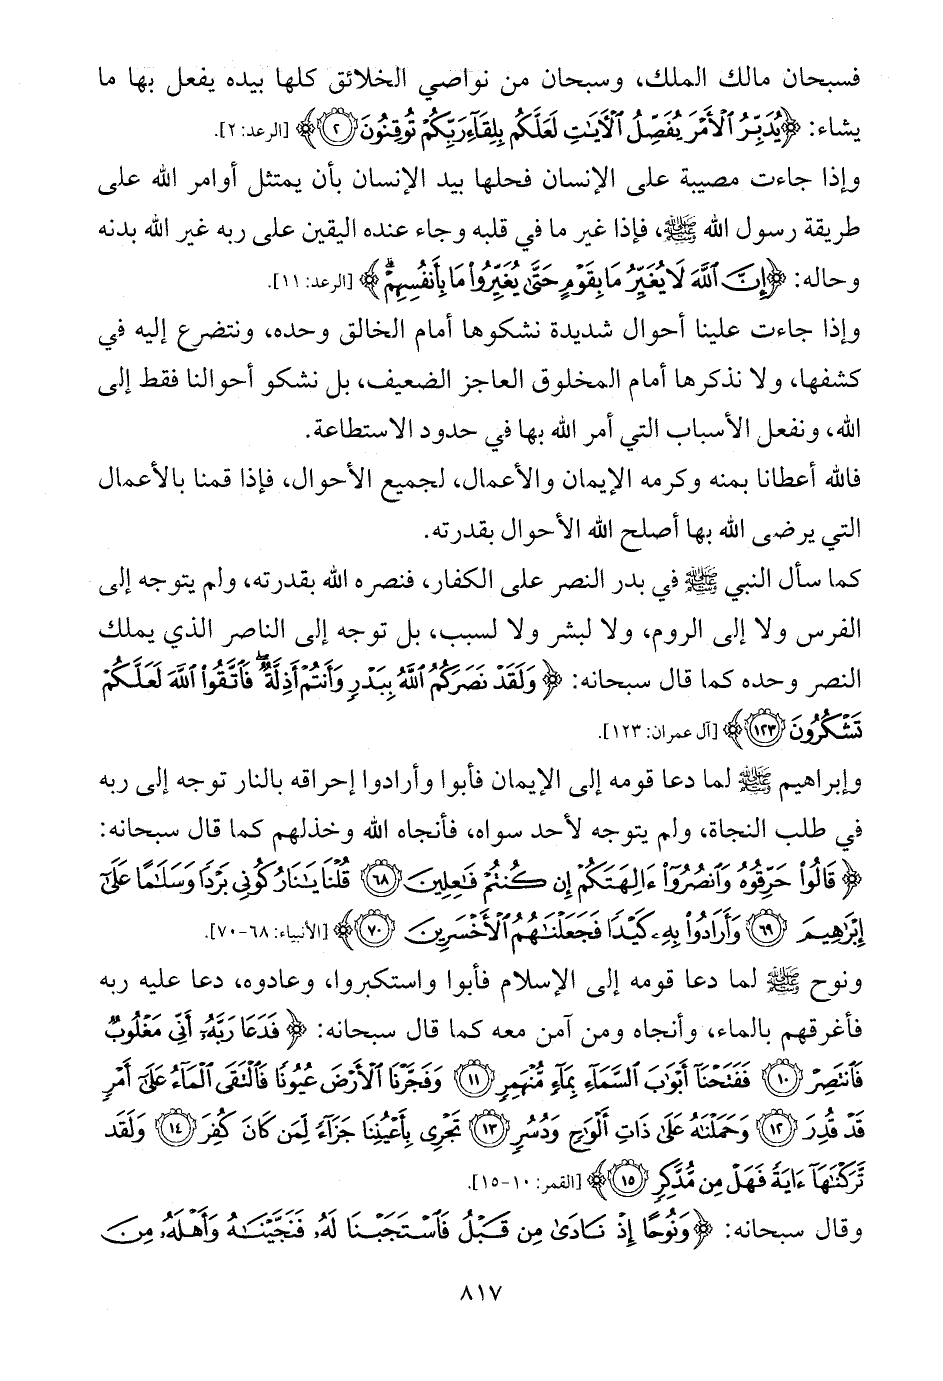 فسبحان مالك الملك، وسبحان من نواصي الخلائق كلها بيده يفعل بها ما
يشاء: ﴿يُدَبِّرُ ٱلْأَمْرَ يُفَصِّلُ ٱلْآيَٰتِ لَعَلَّكُم بِلِقَآءِ رَبِّكُمْ تُوقِنُونَ ٢﴾ [الرعد: ٢].
وإذا جاءت مصيبة على الإنسان فحلها بيد الإنسان بأن يمتثل أوامر الله على
طريقة رسول الله ﷺ، فإذا غير ما في قلبه وجاء عنده اليقين على ربه غير الله بدنه
وحاله: ﴿إِنَّ ٱللَّهَ لَا يُغَيِّرُ مَا بِقَوْمٍ حَتَّىٰ يُغَيِّرُوا۟ مَا بِأَنفُسِهِمْ ۗ﴾ [الرعد: ١١].
وإذا جاءت علينا أحوال شديدة نشكوها أمام الخالق وحده، ونتضرع إليه في
كشفها، ولا نذكرها أمام المخلوق العاجز الضعيف، بل نشكو أحوالنا فقط إلى
الله، ونفعل الأسباب التي أمر الله بها في حدود الاستطاعة.
فالله أعطانا بمنه وكرمه الإيمان والأعمال، لجميع الأحوال، فإذا قمنا بالأعمال
التي يرضى الله بها أصلح الله الأحوال بقدرته.
كما سأل النبي ﷺ في بدر النصر على الكفار، فنصره الله بقدرته، ولم يتوجه إلى
الفرس ولا إلى الروم، ولا لبشر ولا لسبب، بل توجه إلى الناصر الذي يملك
النصر وحده كما قال سبحانه: ﴿وَلَقَدْ نَصَرَكُمُ ٱللَّهُ بِبَدْرٍ وَأَنتُمْ أَذِلَّةٌ ۖ فَٱتَّقُوا۟ ٱللَّهَ لَعَلَّكُمْ
تَشْكُرُونَ ١٢٣﴾ [آل عمران: ١٢٣].
وإبراهيم ﷺ لما دعا قومه إلى الإيمان فأبوا وأرادوا إحراقه بالنار توجه إلى ربه
في طلب النجاة، ولم يتوجه لأحد سواه، فأنجاه الله وخذلهم كما قال سبحانه:
﴿قَالُوا۟ حَرِّقُوهُ وَٱنصُرُوٓا۟ ءَالِهَتَكُمْ إِن كُنتُمْ فَٰعِلِينَ ٦٨ قُلْنَا يَٰنَارُ كُونِى بَرْدًا وَسَلَٰمًا عَلَىٰٓ
إِبْرَٰهِيمَ ٦٩ وَأَرَادُوا۟ بِهِۦ كَيْدًا فَجَعَلْنَٰهُمُ ٱلْأَخْسَرِينَ ٧٠﴾ [الأنبياء: ٦٨-٧٠].
ونوح ﷺ لما دعا قومه إلى الإسلام فأبوا واستكبروا، وعادوه، دعا عليه ربه
فأغرقهم بالماء، وأنجاه ومن آمن معه كما قال سبحانه: ﴿فَدَعَا رَبَّهُۥٓ أَنِّى مَغْلُوبٌ
فَٱنتَصِرْ ١٠ فَفَتَحْنَآ أَبْوَٰبَ ٱلسَّمَآءِ بِمَآءٍ مُّنْهَمِرٍ ١١ وَفَجَّرْنَا ٱلْأَرْضَ عُيُونًا فَٱلْتَقَى ٱلْمَآءُ عَلَىٰٓ أَمْرٍ
قَدْ قُدِرَ ١٢ وَحَمَلْنَٰهُ عَلَىٰ ذَاتِ أَلْوَٰحٍ وَدُسُرٍ ١٣ تَجْرِى بِأَعْيُنِنَا جَزَآءً لِّمَن كَانَ كُفِرَ ١٤ وَلَقَد
تَّرَكْنَٰهَآ ءَايَةً فَهَلْ مِن مُّدَّكِرٍ ١٥﴾ [القمر: ١٠-١٥].
وقال سبحانه: ﴿وَنُوحًا إِذْ نَادَىٰ مِن قَبْلُ فَٱسْتَجَبْنَا لَهُۥ فَنَجَّيْنَٰهُ وَأَهْلَهُۥ مِنَ
٨١٧